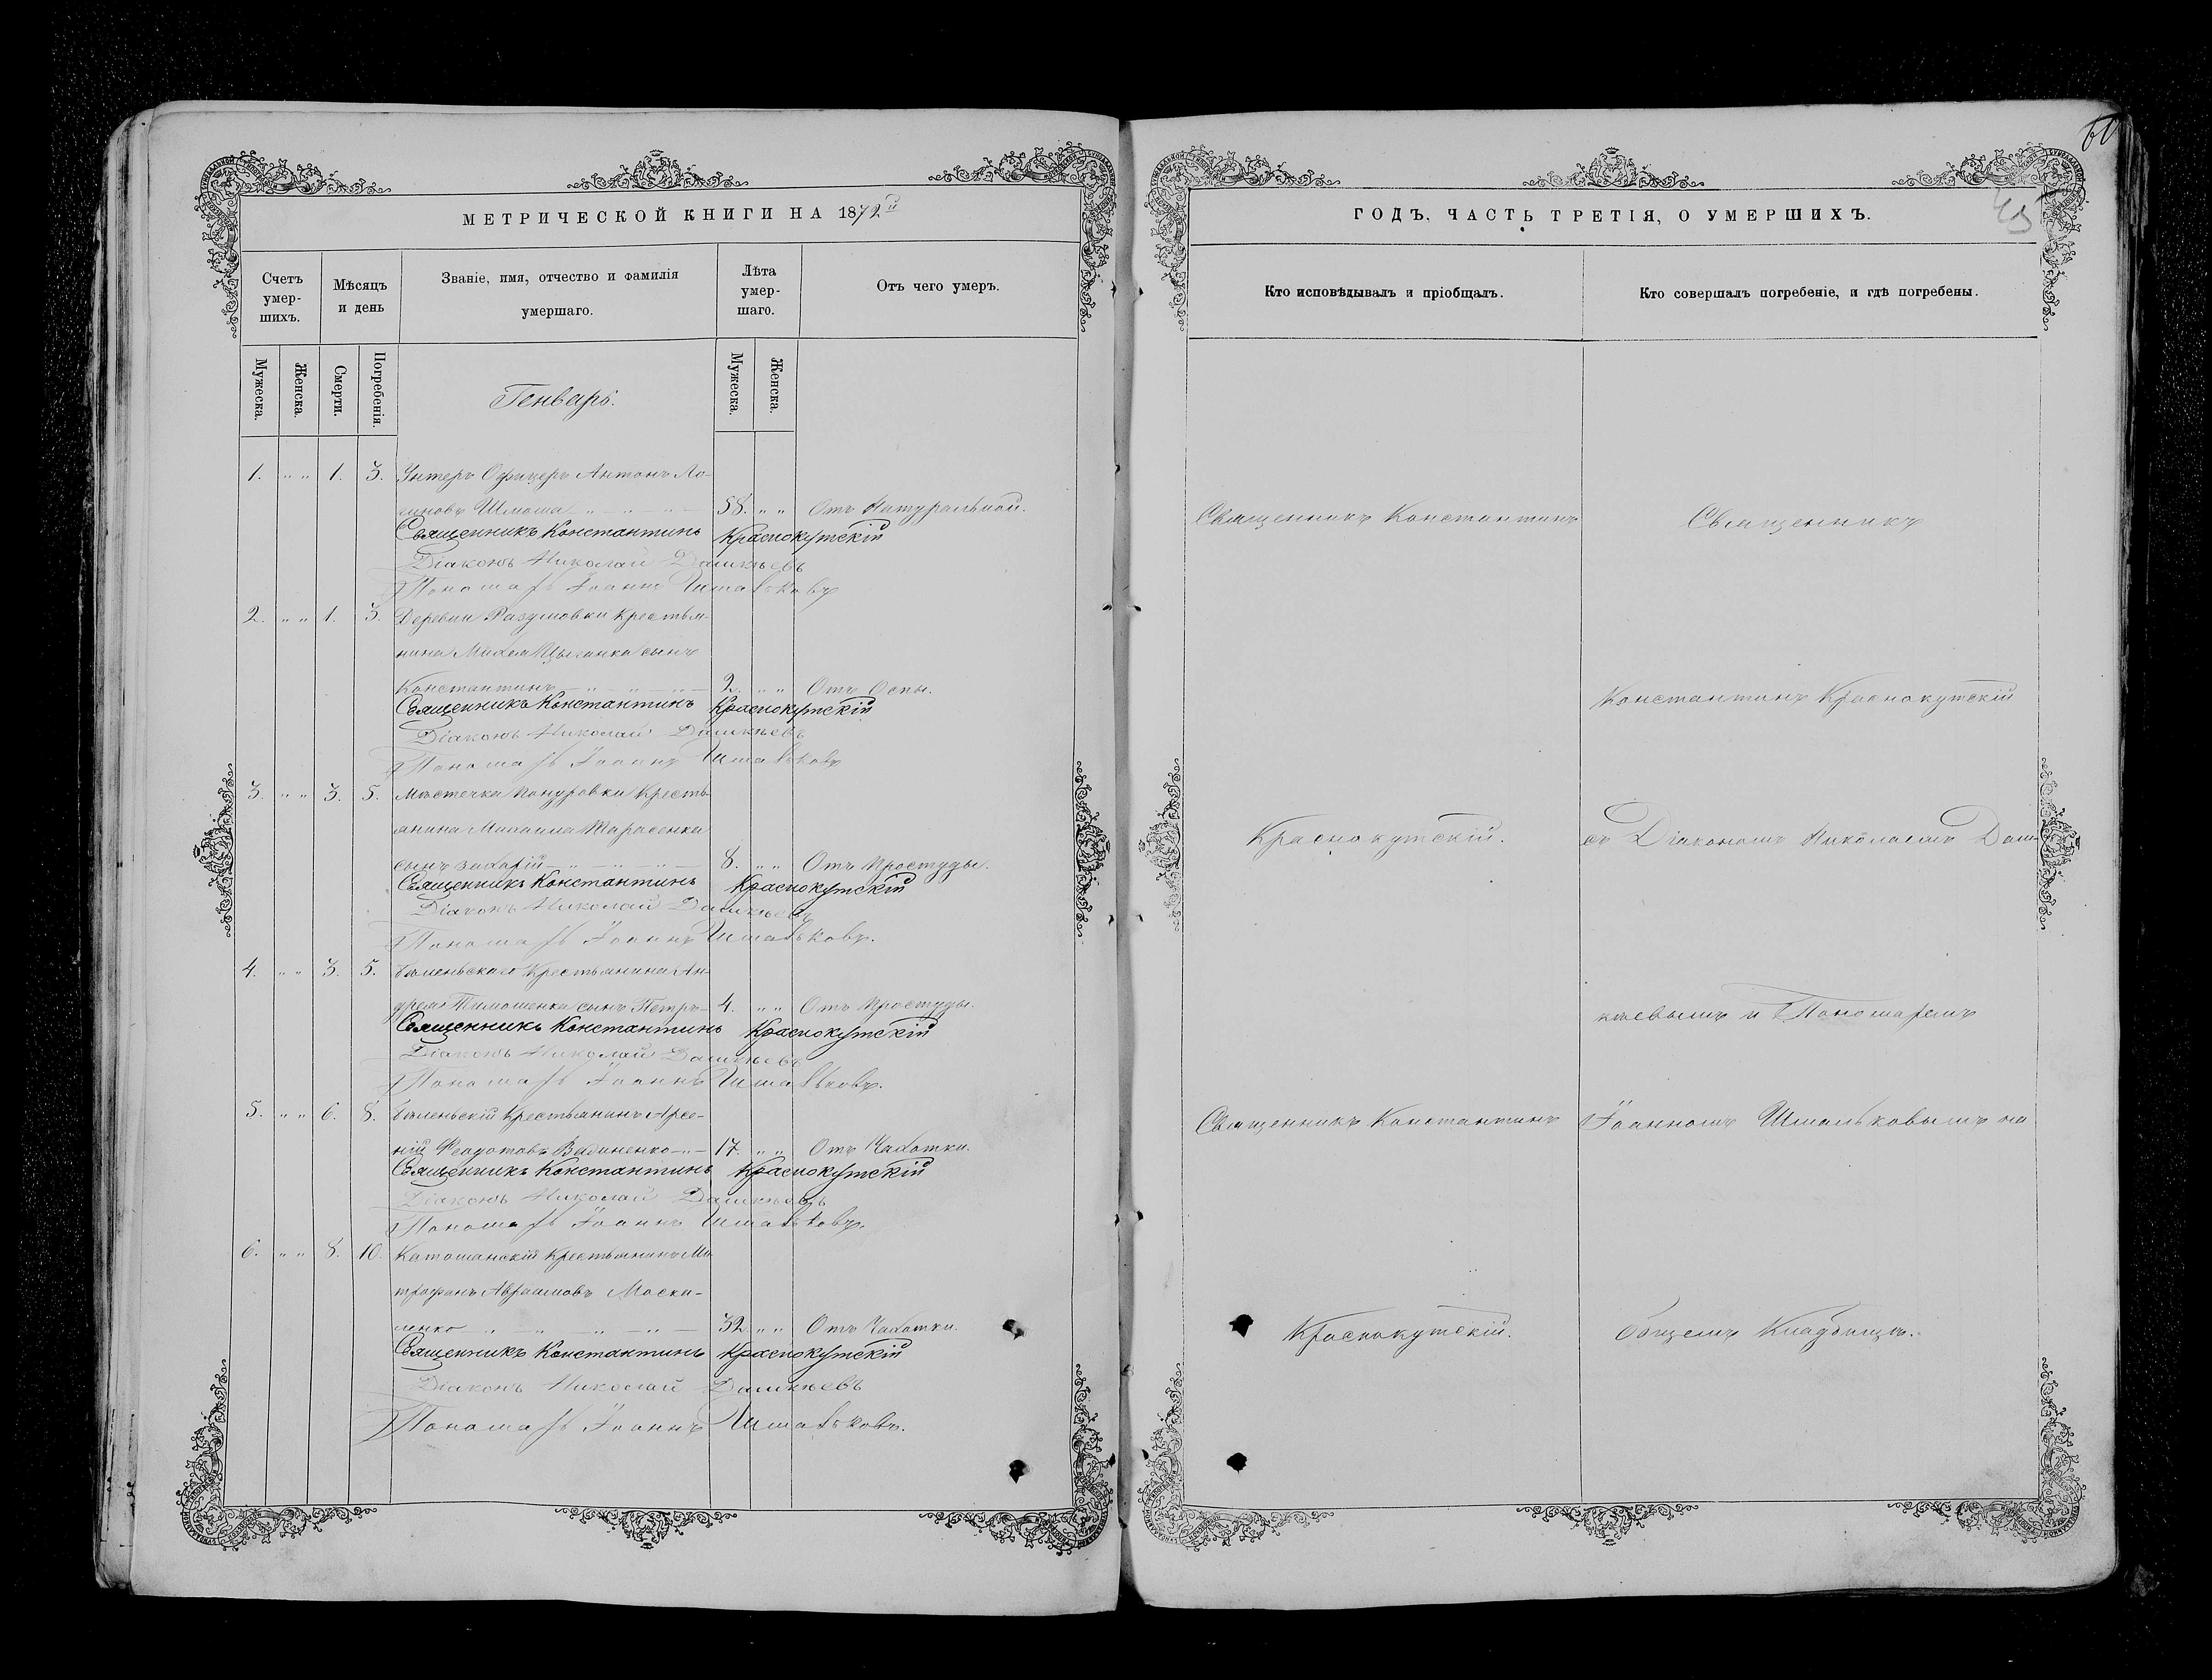 МЕТРИЧЕСКОЙ КНИГИ НА 1872й
Счетъ умер-шихъ.
Мѣсяцъ и день
Званіе, имя, отчество и фамилія
умершаго.
Лѣта умер-шаго.
Отъ чего умеръ.
Мужеска.
Женска.
Смерти.
Погребенія.
Генварь.
Мужеска.
Женска.
1. " " 1. 3. Унтеръ Офицеръ Антонъ Ло-
58. " " Отъ Натуральной.
Священникъ Константинъ Краснокутскій
Діаконъ Николай Дашкѣевъ
Пономарь Іоаннъ Шмальковъ
2. " " 1. 3. Деревни Разумовки Крестья-
нина Михея Цыганка сынъ
Константинъ 2. " " Отъ Оспы.
Священникъ Константинъ Краснокутскій
Діаконъ Николай Дашкѣевъ
Пономарь Іоаннъ Шмальковъ
3. " " 3. 5. Мѣстечка Понуровки Кресть-
янина Михаила Тарасенка
сынъ Захарій 8. " " Отъ Простуды.
Священникъ Константинъ Краснокутскій
Діаконъ Николай Дашкѣевъ
Пономарь Іоаннъ Шмальковъ.
4. " " 3. 5. Крестьянина Ан-
дрея Тимошенка сынъ Петръ 4. " " Отъ Простуды.
Священникъ Константинъ Краснокутскій
Діаконъ Николай Дашкѣевъ
Пономарь Іоаннъ Шмальковъ.
5. " " 6. 8. Крестьянинъ Арсе-
ній Феодотовъ 17. " " Отъ Чахотки.
Священникъ Константинъ Краснокутскій
Діаконъ Николай Дашкѣевъ
Пономарь Іоаннъ Шмальковъ.
6. " " 8. 10. Крестьянинъ Ми-
трофанъ Авраамовъ Моска-
ленко 32. " " Отъ Чахотки.
Священникъ Константинъ Краснокутскій
Діаконъ Николай Дашкѣевъ
Пономарь Іоаннъ Шмальковъ.
ГОДЪ, ЧАСТЬ ТРЕТІЯ, О УМЕРШИХЪ.
Кто исповѣдывалъ и пріобщалъ.
Кто совершалъ погребеніе, и гдѣ погребены.
Священникъ Константинъ
Краснокутскій.
Священникъ Константинъ
Краснокутскій.
Священникъ
Константинъ Краснокутскій
съ Діакономъ Николаемъ Даш-
кѣевымъ и Пономаремъ
Іоанномъ Шмальковымъ на
общемъ Кладбищѣ.